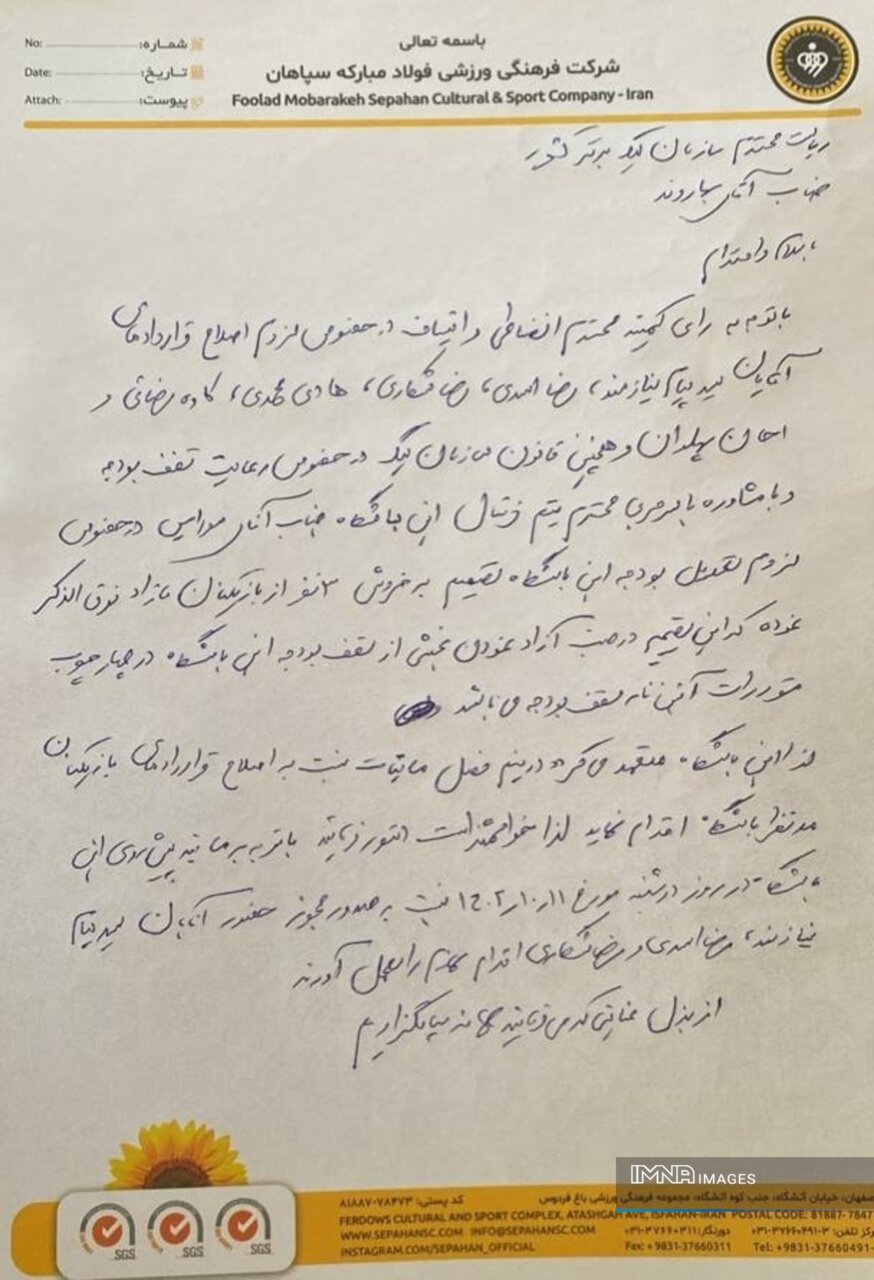 باسمه تعالی
شرکت فرهنگی ورزشی فولاد مبارکه سپاهان
Foolad Mobarakeh Sepahan Cultural & Sport Company - Iran
شماره: No:
تاریخ: Date:
پیوست: Attach:
ریاست محترم سازمان لیگ برتر کشور
جناب آقای بهاروند
با سلام و احترام
با توجه به رای کمیته محترم انضباطی در خصوص لزوم اصلاح قراردادهای
آقایان سید پیام نیازمند، رضا اسدی، رضا شکاری، هادی محمدی، کاوه رضائی و
احسان پهلوان و همچنین قانون سازمان لیگ در خصوص رعایت سقف بودجه
و با مشاوره با سرمربی محترم تیم فوتبال این باشگاه جناب آقای مورایس در خصوص
لزوم تعدیل بودجه این باشگاه تصمیم به فروش ۳ نفر از بازیکنان مازاد فوق الذکر
نموده که این تصمیم در جهت آزاد نمودن بخشی از سقف بودجه این باشگاه در چهارچوب
مقررات آئین نامه سقف بودجه می باشد
لذا این باشگاه متعهد می گردد در نیم فصل مسابقات نسبت به اصلاح قراردادهای بازیکنان
مد نظر باشگاه اقدام نماید لذا خواهشمند است دستور فرمائید با توجه به مسابقه پیش روی این
باشگاه در روز دوشنبه مورخ ۱۴۰۲/۱۰/۱۱ نسبت به صدور مجوز حضور آقایان سید پیام
نیازمند، رضا اسدی و رضا شکاری اقدام لازم را بعمل آورند
از بذل عنایتی که می فرمائید سپاسگزاریم
IMNA IMAGES
اصفهان، خیابان آتشگاه، جنب کوه آتشگاه، مجموعه فرهنگی ورزشی باغ فردوس کد پستی: ۸۱۸۸۷-۷۸۴۷۳
FERDOWS CULTURAL AND SPORT COMPLEX, ATASHGAH AVE, ISFAHAN-IRAN POSTAL CODE: 81887-7847
مرکز تلفن: ۳-۰۳۱-۳۷۶۶۰۴۹۱ دورنگار: ۰۳۱-۳۷۶۶۰۳۱۱ WWW.SEPAHANSC.COM INFO@SEPAHANSC.COM
INSTAGRAM.COM/SEPAHAN_OFFICIAL Fax: +9831-37660311 Tel: +9831-37660491-
SGS SGS SGS